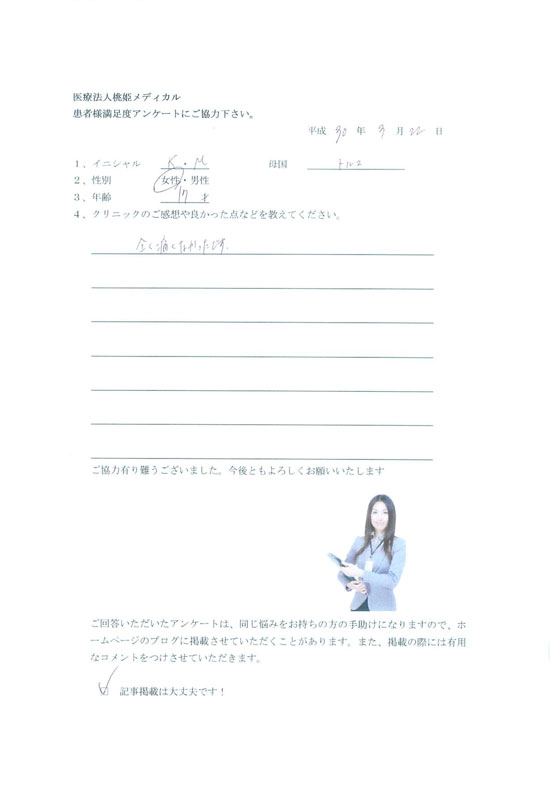 医療法人桃姫メディカル
患者様満足度アンケートにご協力下さい。
平成 30 年 3 月 22 日
1、イニシャル K・M 母国 トルコ
2、性別 女性・男性
3、年齢 17 才
4、クリニックのご感想や良かった点などを教えてください。
全く痛くなかったです。
ご協力有り難うございました。今後ともよろしくお願いいたします
ご回答いただいたアンケートは、同じ悩みをお持ちの方の手助けになりますので、ホ
ームページのブログに掲載させていただくことがあります。また、掲載の際には有用
なコメントをつけさせていただきます。
記事掲載は大丈夫です！